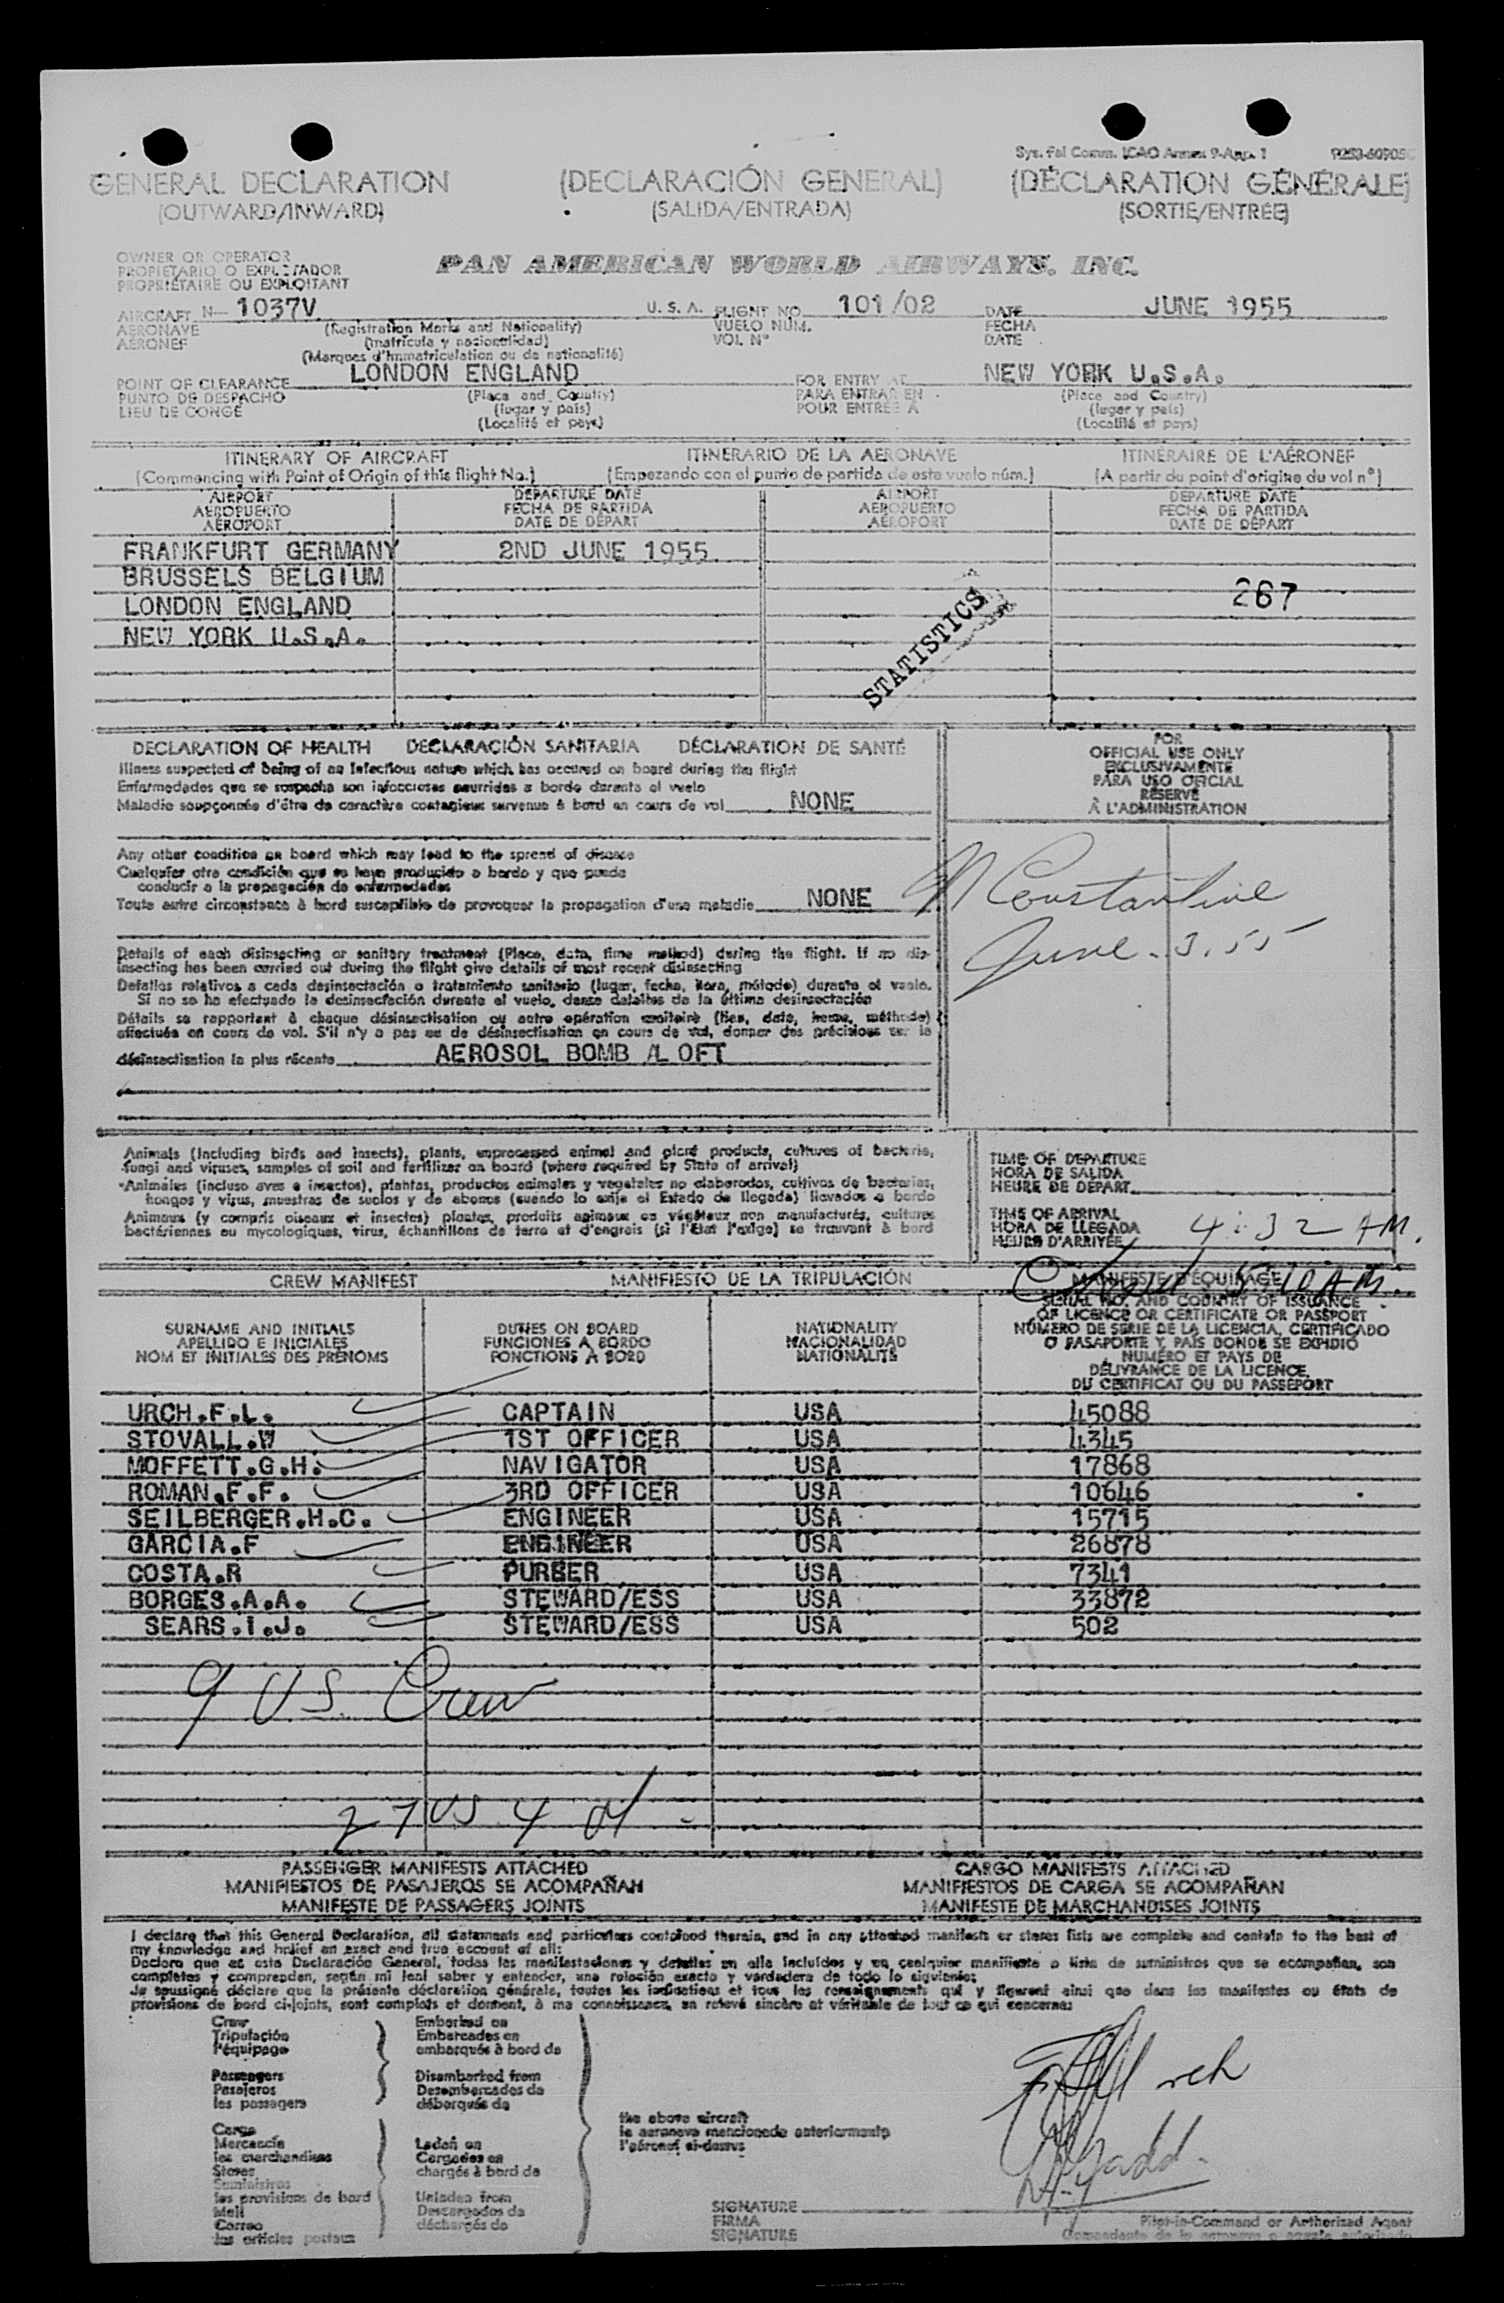 Sys. Fal Comm. ICAO Annex 9-App. 1
GENERAL DECLARATION (DECLARACIÓN GENERAL) (DÉCLARATION GÉNÉRALE)
(OUTWARD/INWARD) (SALIDA/ENTRADA) (SORTIE/ENTRÉE)
OWNER OR OPERATOR
PROPIETARIO O EXPLOTADOR
PROPRIÉTAIRE OU EXPLOITANT
PAN AMERICAN WORLD AIRWAYS, INC.
AIRCRAFT N- 1037V U. S. A. FLIGHT NO. 101/02 DATE JUNE 1955
AERONAVE (Registration Marks and Nationality) VUELO NÚM. FECHA
AÉRONEF (matrícula y nacionalidad) VOL N° DATE
(Marques d'immatriculation ou de nationalité)
POINT OF CLEARANCE LONDON ENGLAND FOR ENTRY AT NEW YORK U.S.A.
PUNTO DE DESPACHO (Place and Country) PARA ENTRAR EN (Place and Country)
LIEU DE CONGÉ (lugar y país) POUR ENTRÉE À (lugar y país)
(Localité et pays) (Localité et pays)
ITINERARY OF AIRCRAFT ITINERARIO DE LA AERONAVE ITINÉRAIRE DE L'AÉRONEF
(Commencing with Point of Origin of this flight No.) (Empezando con el punto de partida de este vuelo núm.) (A partir du point d'origine du vol n°)
AIRPORT DEPARTURE DATE AIRPORT DEPARTURE DATE
AEROPUERTO FECHA DE PARTIDA AEROPUERTO FECHA DE PARTIDA
AÉROPORT DATE DE DÉPART AÉROPORT DATE DE DÉPART
FRANKFURT GERMANY 2ND JUNE 1955
BRUSSELS BELGIUM
LONDON ENGLAND 267
NEW YORK U.S.A.
STATISTICS
DECLARATION OF HEALTH DECLARACIÓN SANITARIA DÉCLARATION DE SANTÉ
Illness suspected of being of an infectious nature which has occured on board during the flight
Enfermedades que se sospecha son infecciosas ocurridas a bordo durante el vuelo
Maladie soupçonnée d'être de caractère contagieux survenue à bord en cours de vol NONE
FOR
OFFICIAL USE ONLY
EXCLUSIVAMENTE
PARA USO OFICIAL
RÉSERVÉ
À L'ADMINISTRATION
Any other condition on board which may lead to the spread of disease
Cualquier otra condición que se haya producido a bordo y que puede
conducir a la propagación de enfermedades
Toute autre circonstance à bord susceptible de provoquer la propagation d'une maladie NONE
Constantine
June. 3. 55
Details of each disinsecting or sanitary treatment (Place, date, time method) during the flight. If no dis-
insecting has been carried out during the flight give details of most recent disinsecting
Detalles relativos a cada desinsectación o tratamiento sanitario (lugar, fecha, hora, método) durante el vuelo.
Si no se ha efectuado la desinsectación durante el vuelo, danse detalles de la última desinsectación
Détails se rapportant à chaque désinsectisation ou autre opération sanitaire (lieu, date, heure, méthode)
effectués en cours de vol. S'il n'y a pas eu de désinsectisation en cours de vol, donner des précisions sur la
désinsectisation la plus récente AEROSOL BOMB ALOFT
Animals (Including birds and insects), plants, unprocessed animal and plant products, cultures of bacteria,
fungi and viruses, samples of soil and fertilizer on board (where required by State of arrival)
Animales (incluso aves e insectos), plantas, productos animales y vegetales no elaborados, cultivos de bacterias,
hongos y virus, muestras de suelos y de abonos (cuando lo exija el Estado de llegada) llevados a bordo
Animaux (y compris oiseaux et insectes) plantes, produits animaux ou végétaux non manufacturés, cultures
bactériennes ou mycologiques, virus, échantillons de terre et d'engrais (si l'État l'exige) se trouvant à bord
TIME OF DEPARTURE
HORA DE SALIDA
HEURE DE DÉPART
TIME OF ARRIVAL
HORA DE LLEGADA 4:32 AM.
HEURE D'ARRIVÉE
5:10 AM.
CREW MANIFEST MANIFIESTO DE LA TRIPULACIÓN MANIFESTE D'ÉQUIPAGE
SURNAME AND INITIALS
APELLIDO E INICIALES
NOM ET INITIALES DES PRÉNOMS
DUTIES ON BOARD
FUNCIONES A BORDO
FONCTIONS À BORD
NATIONALITY
NACIONALIDAD
NATIONALITÉ
SERIAL NO. AND COUNTRY OF ISSUANCE
OF LICENCE OR CERTIFICATE OR PASSPORT
NÚMERO DE SERIE DE LA LICENCIA, CERTIFICADO
O PASAPORTE Y PAÍS DONDE SE EXPIDIÓ
NUMÉRO ET PAYS DE
DÉLIVRANCE DE LA LICENCE,
DU CERTIFICAT OU DU PASSEPORT
URCH.F.L. CAPTAIN USA 45088
STOVALL.W 1ST OFFICER USA 4345
MOFFETT.G.H. NAVIGATOR USA 17868
ROMAN.F.F. 3RD OFFICER USA 10646
SEILBERGER.H.C. ENGINEER USA 15715
GARCIA.F ENGINEER USA 26878
COSTA.R PURSER USA 7341
BORGES.A.A. STEWARD/ESS USA 33872
SEARS.I.J. STEWARD/ESS USA 502
9 U.S. Crew
27 US 4
PASSENGER MANIFESTS ATTACHED CARGO MANIFESTS ATTACHED
MANIFIESTOS DE PASAJEROS SE ACOMPAÑAN MANIFIESTOS DE CARGA SE ACOMPAÑAN
MANIFESTE DE PASSAGERS JOINTS MANIFESTE DE MARCHANDISES JOINTS
I declare that this General Declaration, all statements and particulars contained therein, and in any attached manifests or stores lists are complete and contain to the best of
my knowledge and belief an exact and true account of all:
Declaro que es esta Declaración General, todas las manifestaciones y detalles en ella incluídos y en cualquier manifiesto o lista de suministros que se acompañan, son
completos y comprenden, según mi leal saber y entender, una relación exacta y verdadera de todo lo siguiente:
Je soussigné déclare que la présente déclaration générale, toutes les indications et tous les renseignements qui y figurent ainsi que dans les manifestes ou états de
provisions de bord ci-joints, sont complets et donnent, à ma connaissance, un relevé sincère et véritable de tout ce qui concerne:
Crew Embarked on
Tripulación Embarcados en
l'équipage embarqués à bord de
Passengers Disembarked from
Pasajeros Desembarcados de
les passagers débarqués de
the above aircraft
la aeronave mencionada anteriormente
l'aéronef ci-dessus
Cargo
Mercancía Laden on
les marchandises Cargados en
Stores chargés à bord de
Suministros
les provisions de bord Unladen from
Mail Descargados de
Correo déchargés de
les articles postaux
SIGNATURE
FIRMA Pilot-in-Command or Authorized Agent
SIGNATURE Comandante de la aeronave o agente autorizado